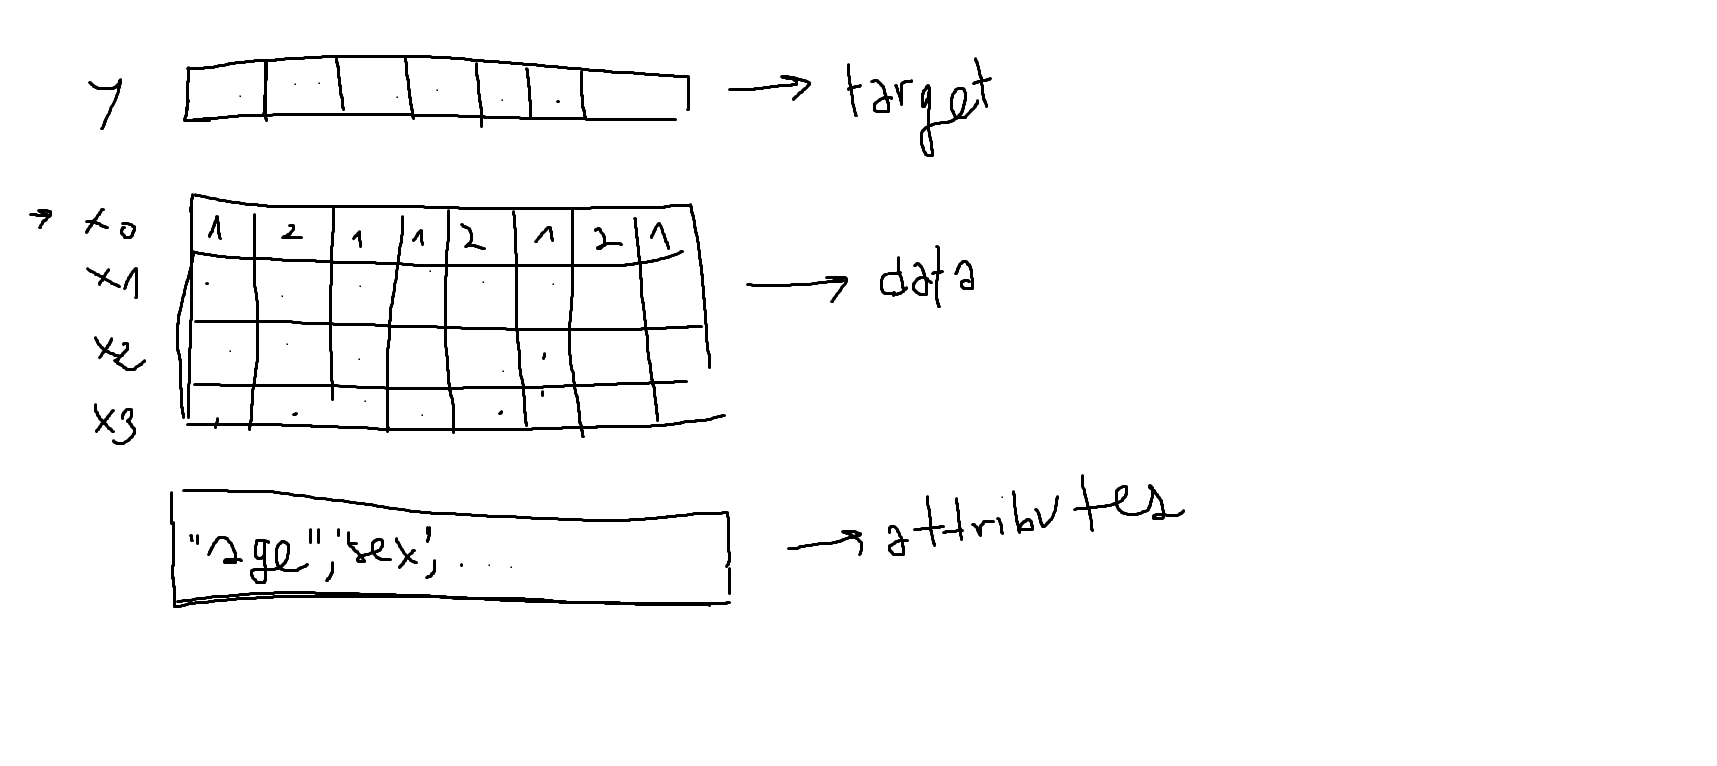 y → target
→ x0 1 2 1 1 2 1 2 1
x1 → data
x2
x3
"age", 'sex', ... → attributes